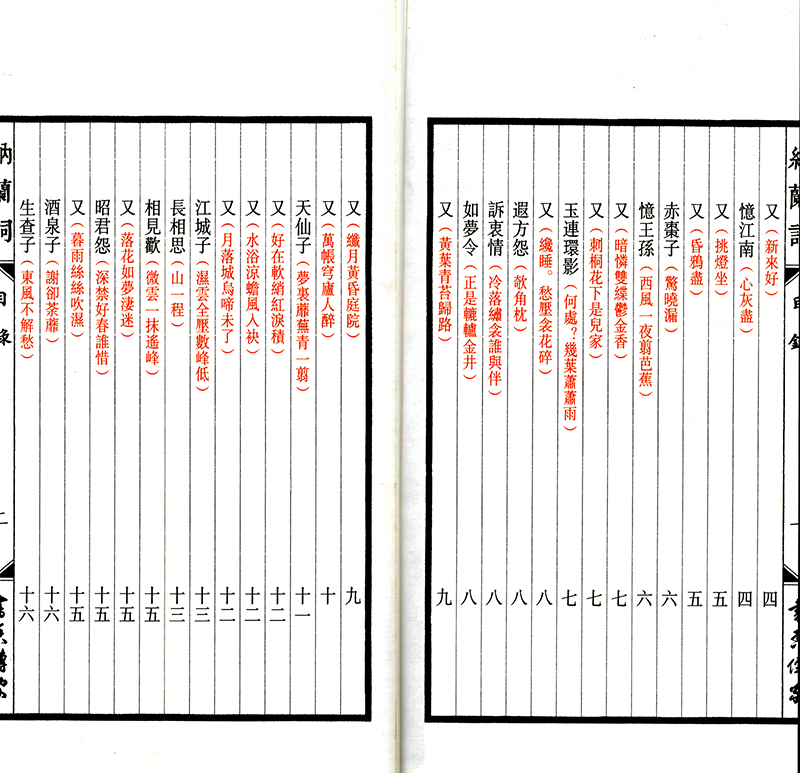 又（新來好）　四
憶江南（心灰盡）　四
又（挑燈坐）　五
又（昏鴉盡）　五
赤棗子（驚曉漏）　六
憶王孫（西風一夜翦芭蕉）　六
又（暗憐雙緤鬱金香）　七
又（刺桐花下是兒家）　七
玉連環影（何處？幾葉蕭蕭雨）　七
又（纔睡。愁壓衾花碎）　八
遐方怨（欹角枕）　八
訴衷情（冷落繡衾誰與伴）　八
如夢令（正是轆轤金井）　八
又（黃葉青苔歸路）　九
又（纖月黃昏庭院）　九
又（萬帳穹廬人醉）　十
天仙子（夢裏蘼蕪青一翦）　十一
又（好在軟綃紅淚積）　十二
又（水浴涼蟾風人袂）　十二
又（月落城烏啼未了）　十二
江城子（濕雲全壓數峰低）　十三
長相思（山一程）　十三
相見歡（微雲一抹遙峰）　十五
又（落花如夢淒迷）　十五
昭君怨（深禁好春誰惜）　十五
又（暮雨絲絲吹濕）　十五
酒泉子（謝卻荼蘼）　十六
生查子（東風不解愁）　十六
納蘭詞
目錄
二